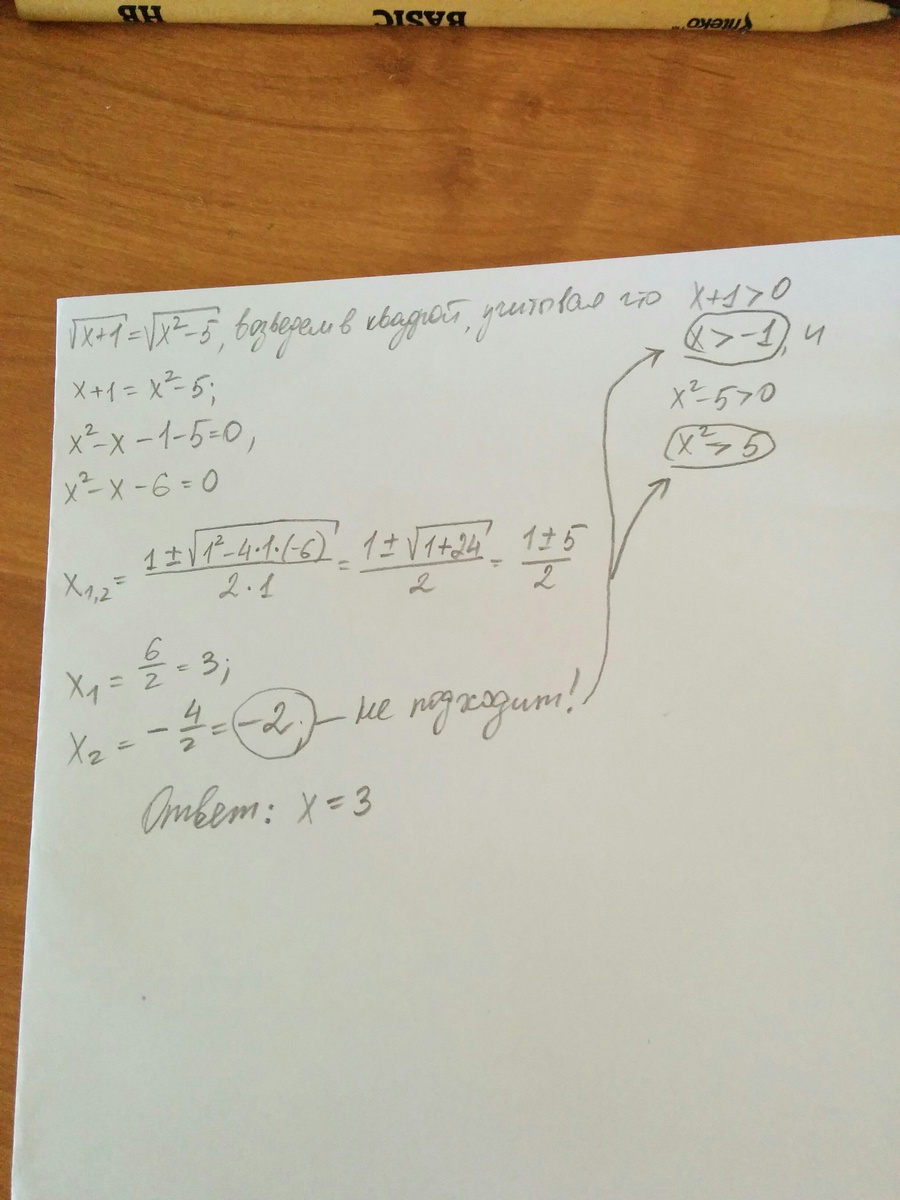 HB BASIC Inteko
√x+1 = √x²-5, возведем в квадрат, учитывая что x+1>0
x>-1, и
x+1 = x²-5;
x²-5>0
x²-x-1-5=0,
x²>5
x²-x-6=0
x₁,₂ = (1±√1²-4·1·(-6))/(2·1) = (1±√1+24)/2 = (1±5)/2
x₁ = 6/2 = 3;
x₂ = -4/2 = -2; - не подходит!
Ответ: x=3